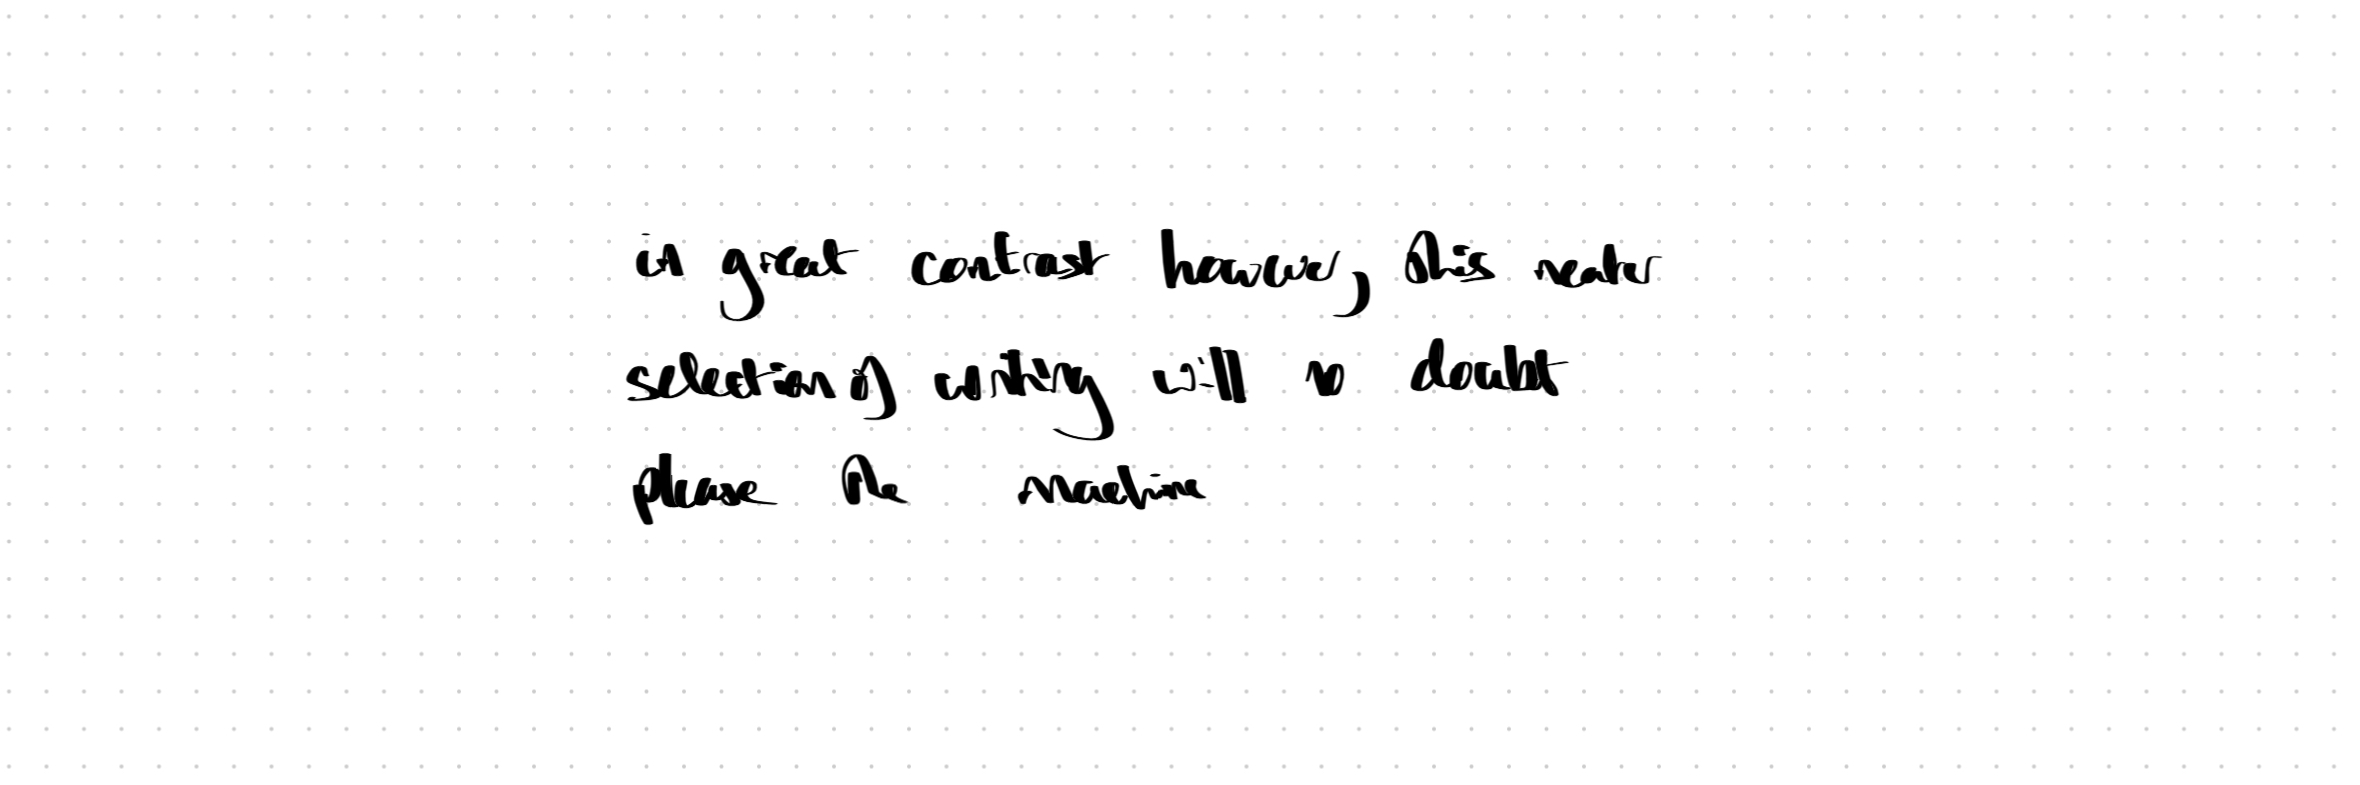 in great contrast however, this neater
selection of writing will no doubt
please the machine